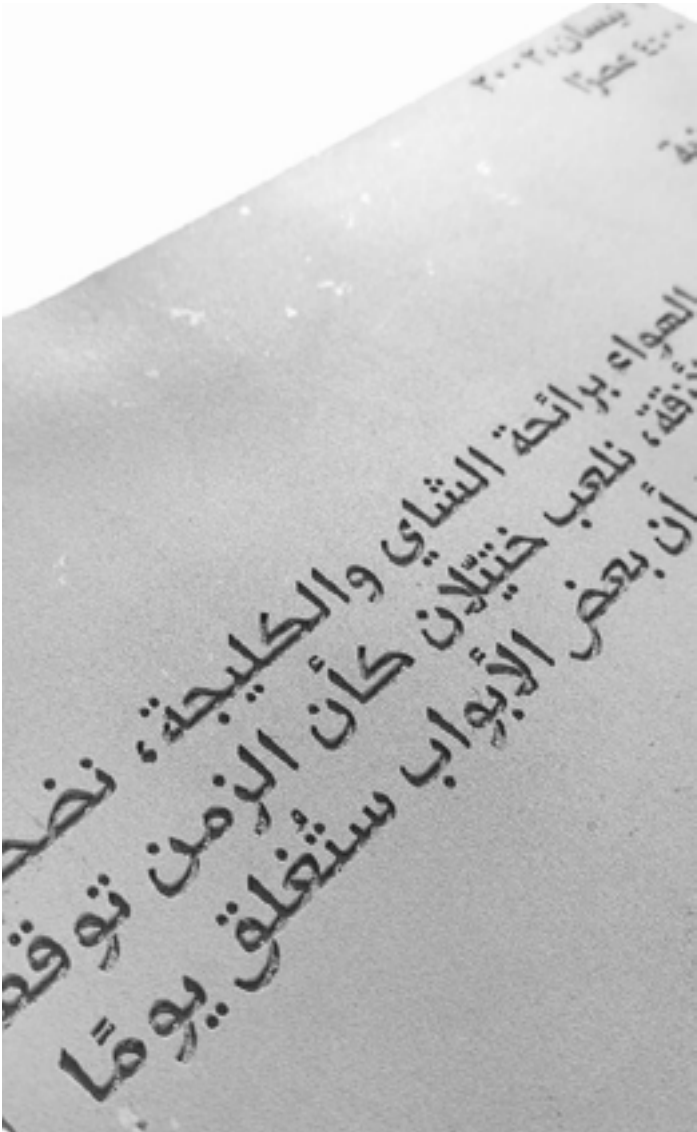 نيسان، ٢٠٠٢
٤:٠٠ عصرًا
الهواء برائحة الشاي والكليجة، نضح
نلعب ختيلان كأن الزمن توقف
أن بعض الأبواب ستُغلق يومًا